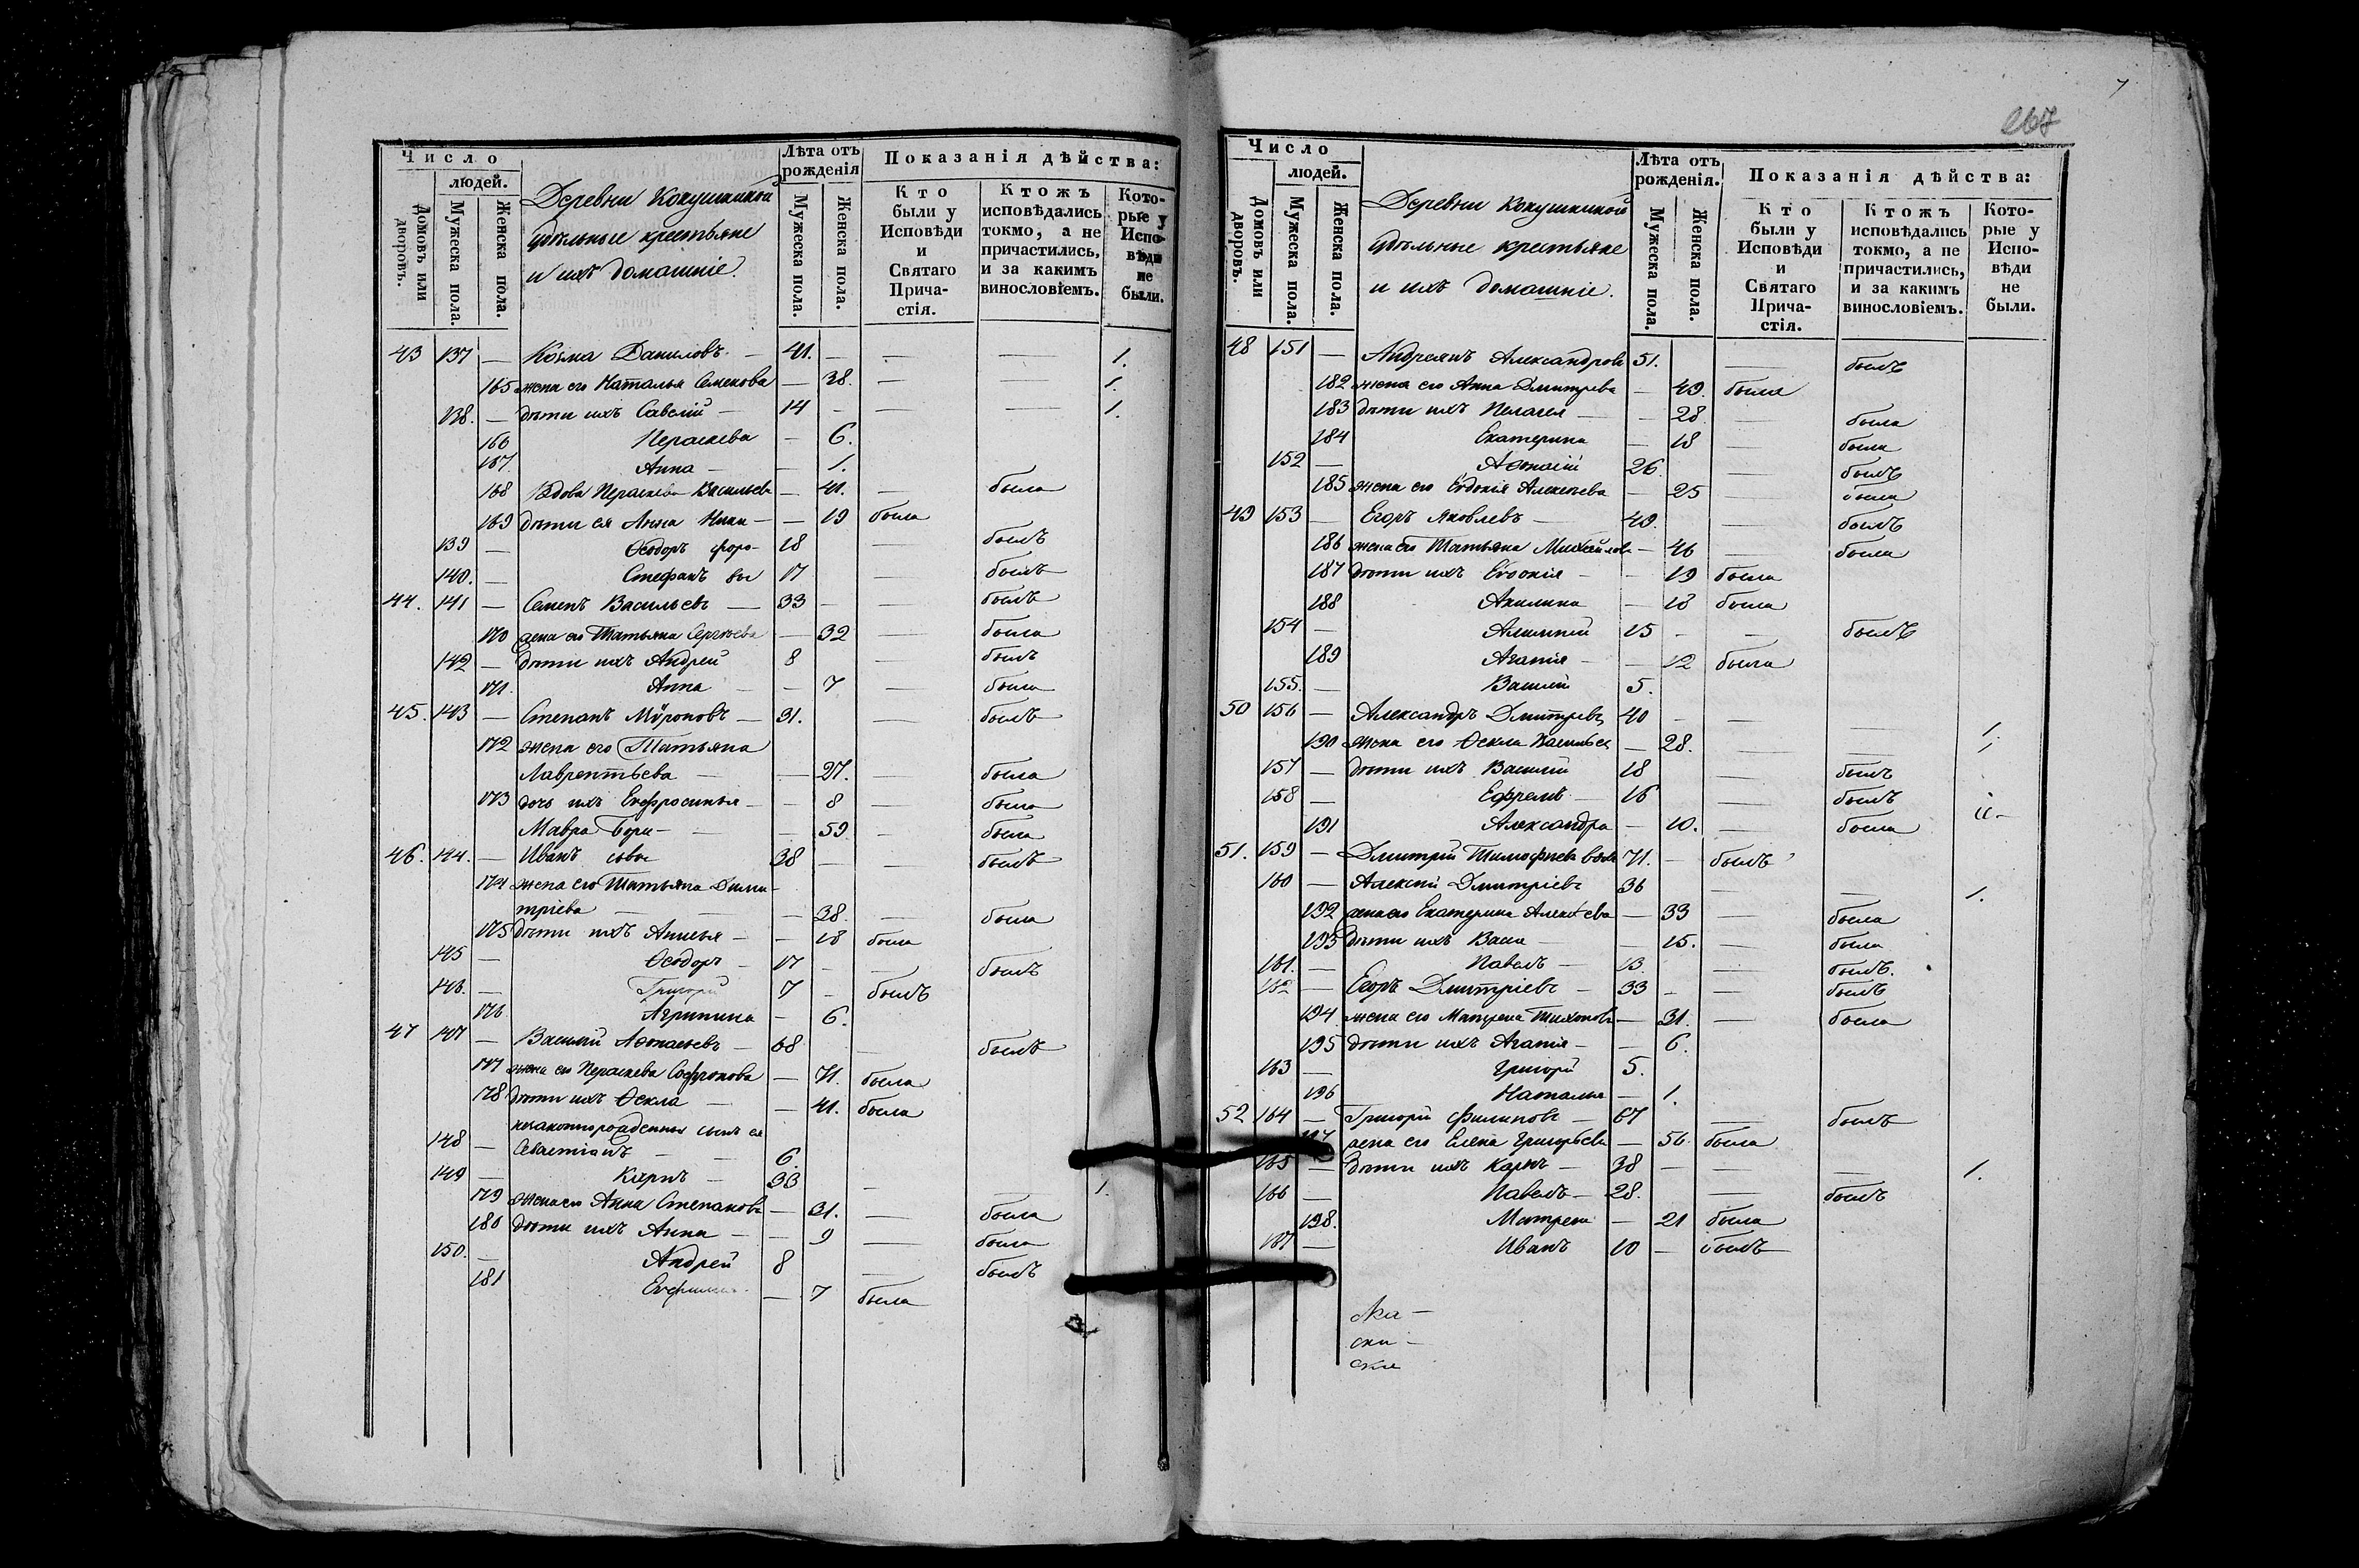 Число
людей.
Домовъ или дворовъ.
Мужеска пола.
Женска пола.
Деревни Кокушкиной
удѣльные крестьяне
и ихъ домашніе.
Лѣта отъ рожденія
Мужеска пола.
Женска пола.
Показанія дѣйства:
Кто были у Исповѣди и Святаго Прича-стія.
Ктожъ исповѣдались токмо, а не причастились, и за какимъ винословіемъ.
Кото-рые у Испо-вѣди не были.
43 137 — Козма Даниловъ — 41. — — — 1.
165 жена его Наталья Семенова — 38. — — 1.
138. — дѣти ихъ Савелій — 14 — — — 1.
166 Пераскева — 6.
167. Анна — — 1.
168 Вдова Пераскева Васильева — 41. — была
169 дѣти ея Анна — — 19 была
139 — Ѳеодоръ 18 — былъ
140. — Стефанъ 17 — былъ
44. 141 — Семенъ Васильевъ — 33 — — былъ
170 жена его Татьяна Сергѣева — 32 — была
142 — дѣти ихъ Андрей 8 — былъ
171. Анна — — 7 — была
45. 143 — Степанъ Мѵроновъ — 31. — былъ
172 жена его Татьяна
Лаврентьева — — 27. — была
173 дочь ихъ Евфросинья — — 8 — была
Мавра — — 59 — была
46. 144. — Иванъ 38 — — былъ
174 жена его Татьяна Дими-
тріева — — — 38. — была
175 дѣти ихъ — — 18 была
145 — Ѳеодоръ — 17 — — былъ
146. — Григорій 7 — былъ
176 Агрипина — 6.
47 147 — Василій Аѳонасьевъ — 68 — былъ
177 жена его Пераскева Софронова — 71. была
178 дѣти ихъ Ѳекла — — 41. была
незаконнорожденный сынъ ея
148 — Севастіанъ — — 6.
149 — Карпъ — 33 — — 1.
179 жена его Анна Степанова — 31. — была
180 дѣти ихъ Анна — — 9 — была
150. — Андрей 8 — былъ
181 — 7 была
267
Число
людей.
Домовъ или дворовъ.
Мужеска пола.
Женска пола.
Деревни Кокушкиной
удѣльные крестьяне
и ихъ домашніе.
Лѣта отъ рожденія.
Мужеска пола.
Женска пола.
Показанія дѣйства:
Кто были у Исповѣди и Святаго Прича-стія.
Ктожъ исповѣдались токмо, а не причастились, и за какимъ винословіемъ.
Кото-рые у Испо-вѣди не были.
48 151 — Андреянъ Александровъ 51. — былъ
182 жена его Анна Дмитрева — 49. была
183 дѣти ихъ Пелагея — — 28. — была
184 Екатерина — 18 — была
152 — Аѳонасій 26 — былъ
185 жена его Евдокія Алексѣева — 25 — была
49 153 — Егоръ Яковлевъ — 49. — былъ
186 жена его Татьяна Михайлова — 46 — была
187 дѣти ихъ Евдокія — — 19 была
188 Акилина — 18 была
154 — 15 — — былъ
189 Агапія — — 12 была
155. — Василій 5.
50 156 — Александръ Дмитревъ 40 — — — 1.
190 жена его Ѳекла — 28. — — 1
157 — дѣти ихъ Василій 18 — былъ
158 — Ефремъ — 16 — былъ
191 Александра — 10. — была
51. 159 — Дмитрій Тимофѣевъ 71. — былъ
160 — Алексѣй Дмитріевъ 36 — — 1.
192 жена его Екатерина Алексѣева — 33 — была
193 дѣти ихъ — — 15. — была
161. — Павелъ — 13. — былъ.
162 — Егоръ Дмитріевъ — 33 — — былъ
194 жена его Матрена Тихонова — 31. — была
195 дѣти ихъ Агапія — — 6.
163 — Григорій 5.
196 Наталья — 1.
52 164 — Григорій Филиповъ — 67 — былъ
жена его Елена Григорьева — 56. была
165 — дѣти ихъ Карпъ — 38 — — — 1.
166 — Павелъ — 28. — былъ
198. Матрена — 21 была
167 — Иванъ 10 — былъ